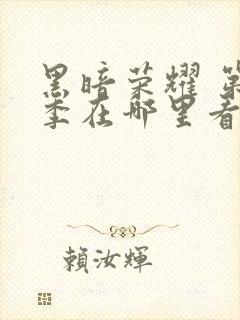 黑暗荣耀 第
季在哪里看
賴汝輝